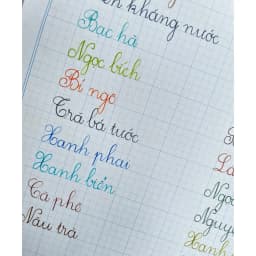 kháng nước
Bạc hà
Ngọc bích
Bí ngô
Trà bá tước
Xanh phai
Xanh biển
Cà phê
Nâu trà
Ngọc
Nguy
Xanh